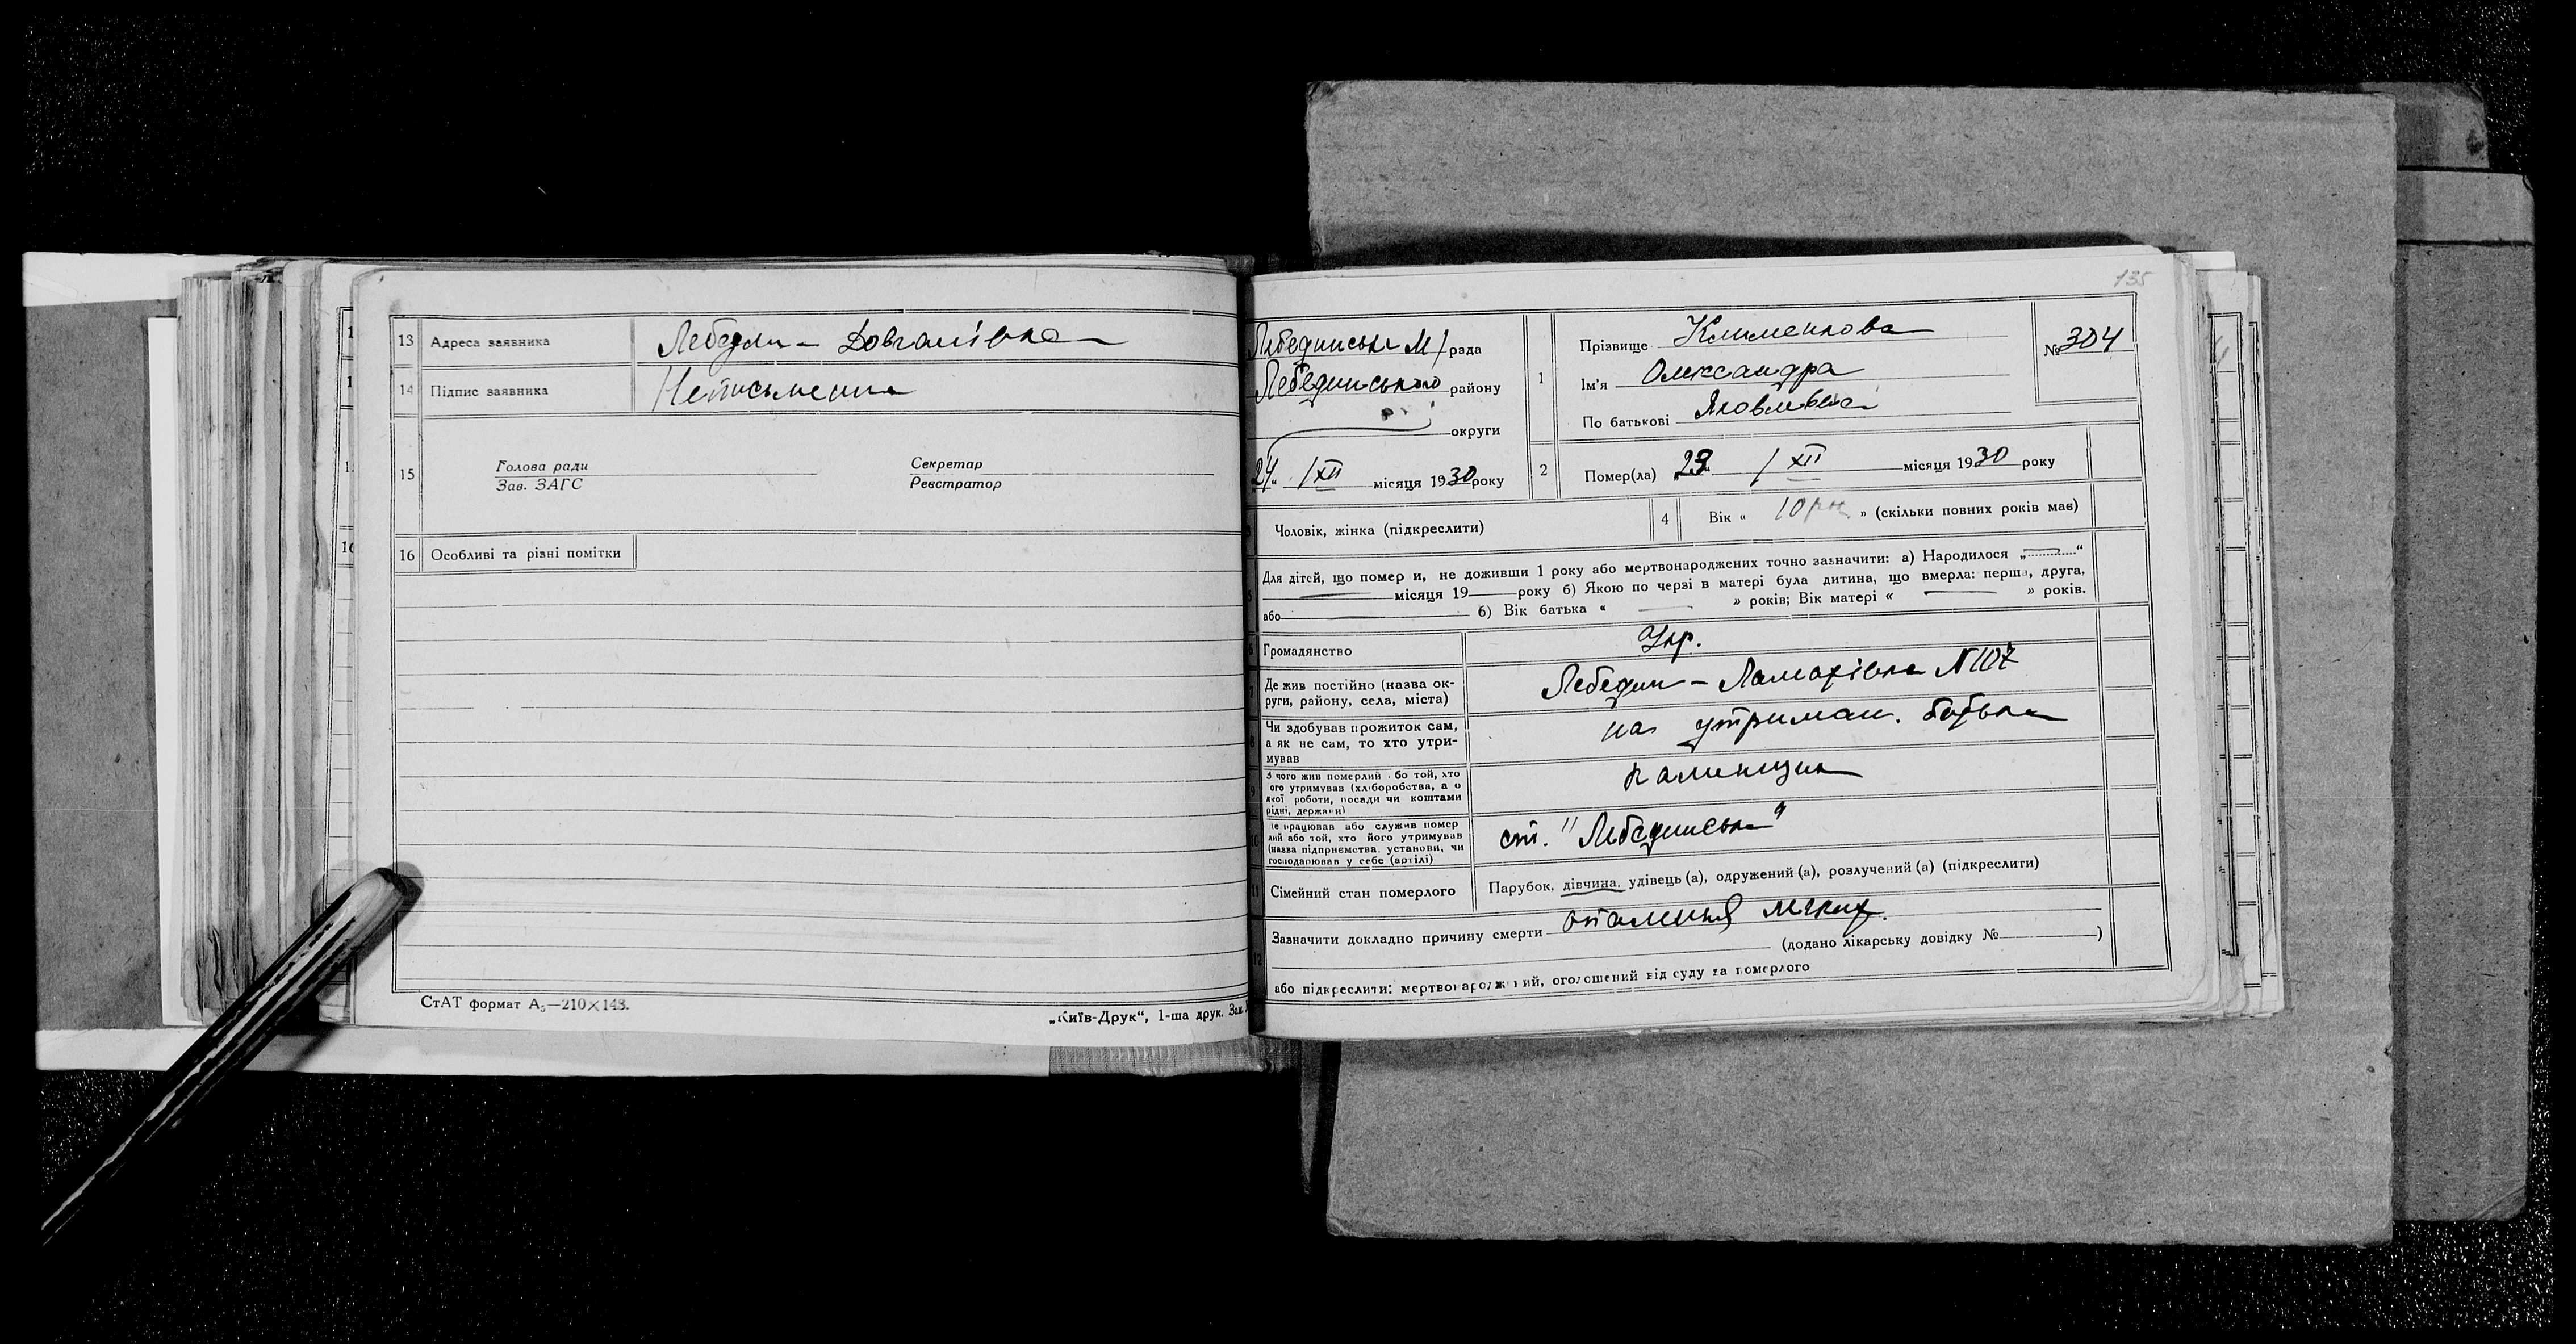 13 Адреса заявника Лебедин – Довганівка
14 Підпис заявника Неписьменна
15 Голова ради Секретар
Зав. ЗАГС Реєстратор
16 Особливі та різні помітки
СтАТ формат А₅—210×148.
„Київ-Друк“, 1-ша друк. Зам.
135
Лебединська М/рада
Лебединського району
округи
24 / XII місяця 1930 року
1 Прізвище Клименкова
Ім'я Олександра
По батькові Яковлівна
№ 304
2 Помер(ла) 23 / XII місяця 1930 року
Чоловік, жінка (підкреслити)
4 Вік « 10 рк » (скільки повних років має)
Для дітей, що помер и, не доживши 1 року або мертвонароджених точно зазначити: а) Народилося „ “
місяця 19 року б) Якою по черзі в матері була дитина, що вмерла: перша, друга,
або б) Вік батька « » років; Вік матері « » років.
6 Громадянство Укр.
7 Де жив постійно (назва ок-
руги, району, села, міста) Лебедин – N 107
8 Чи здобував прожиток сам,
а як не сам, то хто утри-
мував на утриман. батька
9 З чого жив померлий або той, хто
ого утримував (хліборобства, а о
якої роботи, посади чи коштами
рідні, держави)
10 е працював або служив помер
лий або той, хто його утримував
(назва підприємства, установи, чи
господарював у себе (артілі) ст. "Лебединська"
11 Сімейний стан померлого Парубок, дівчина, удівець (а), одружений (а), розлучений (а) (підкреслити)
12 Зазначити докладно причину смерти опалення легких.
(додано лікарську довідку № )
або підкреслити: мертвонароджений, оголошений від суду за померлого